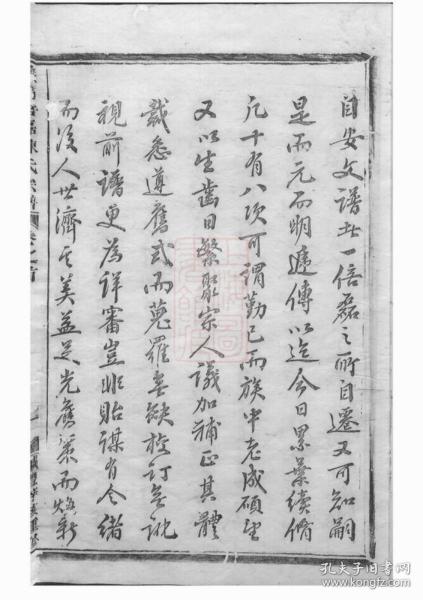 自安文譜此一倍磊之所自遷又可知嗣
是而元而明遞傳以迄今日累葉續脩
凡十有八次可謂勤已而族中老成碩望
又以生齒日繁聚宗人議加補正其體
裁悉遵舊式而蒐羅無缺校訂無訛
視前譜更為詳審豈非貽謀有令緒
而後人世濟其美益足光舊業而煥新
陳氏宗譜
卷之首
孔夫子旧书网
www.kongfz.com